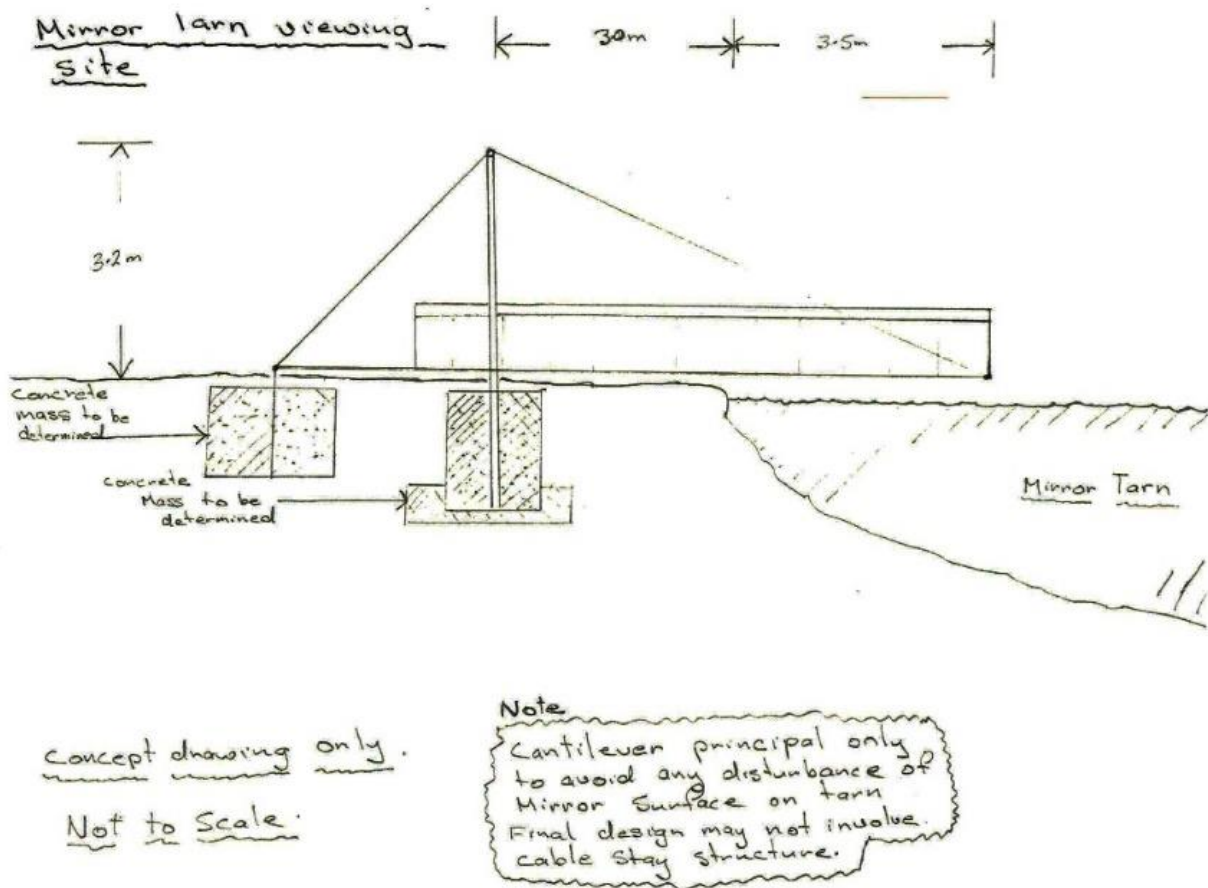 Mirror Tarn viewing
site
3.0m
3.5m
3.2m
concrete
mass to be
determined
concrete
Mass to be
determined
Mirror Tarn
concept drawing only.
Not to Scale.
Note
Cantilever principal only
to avoid any disturbance of
Mirror Surface on tarn
Final design may not involve.
cable stay structure.